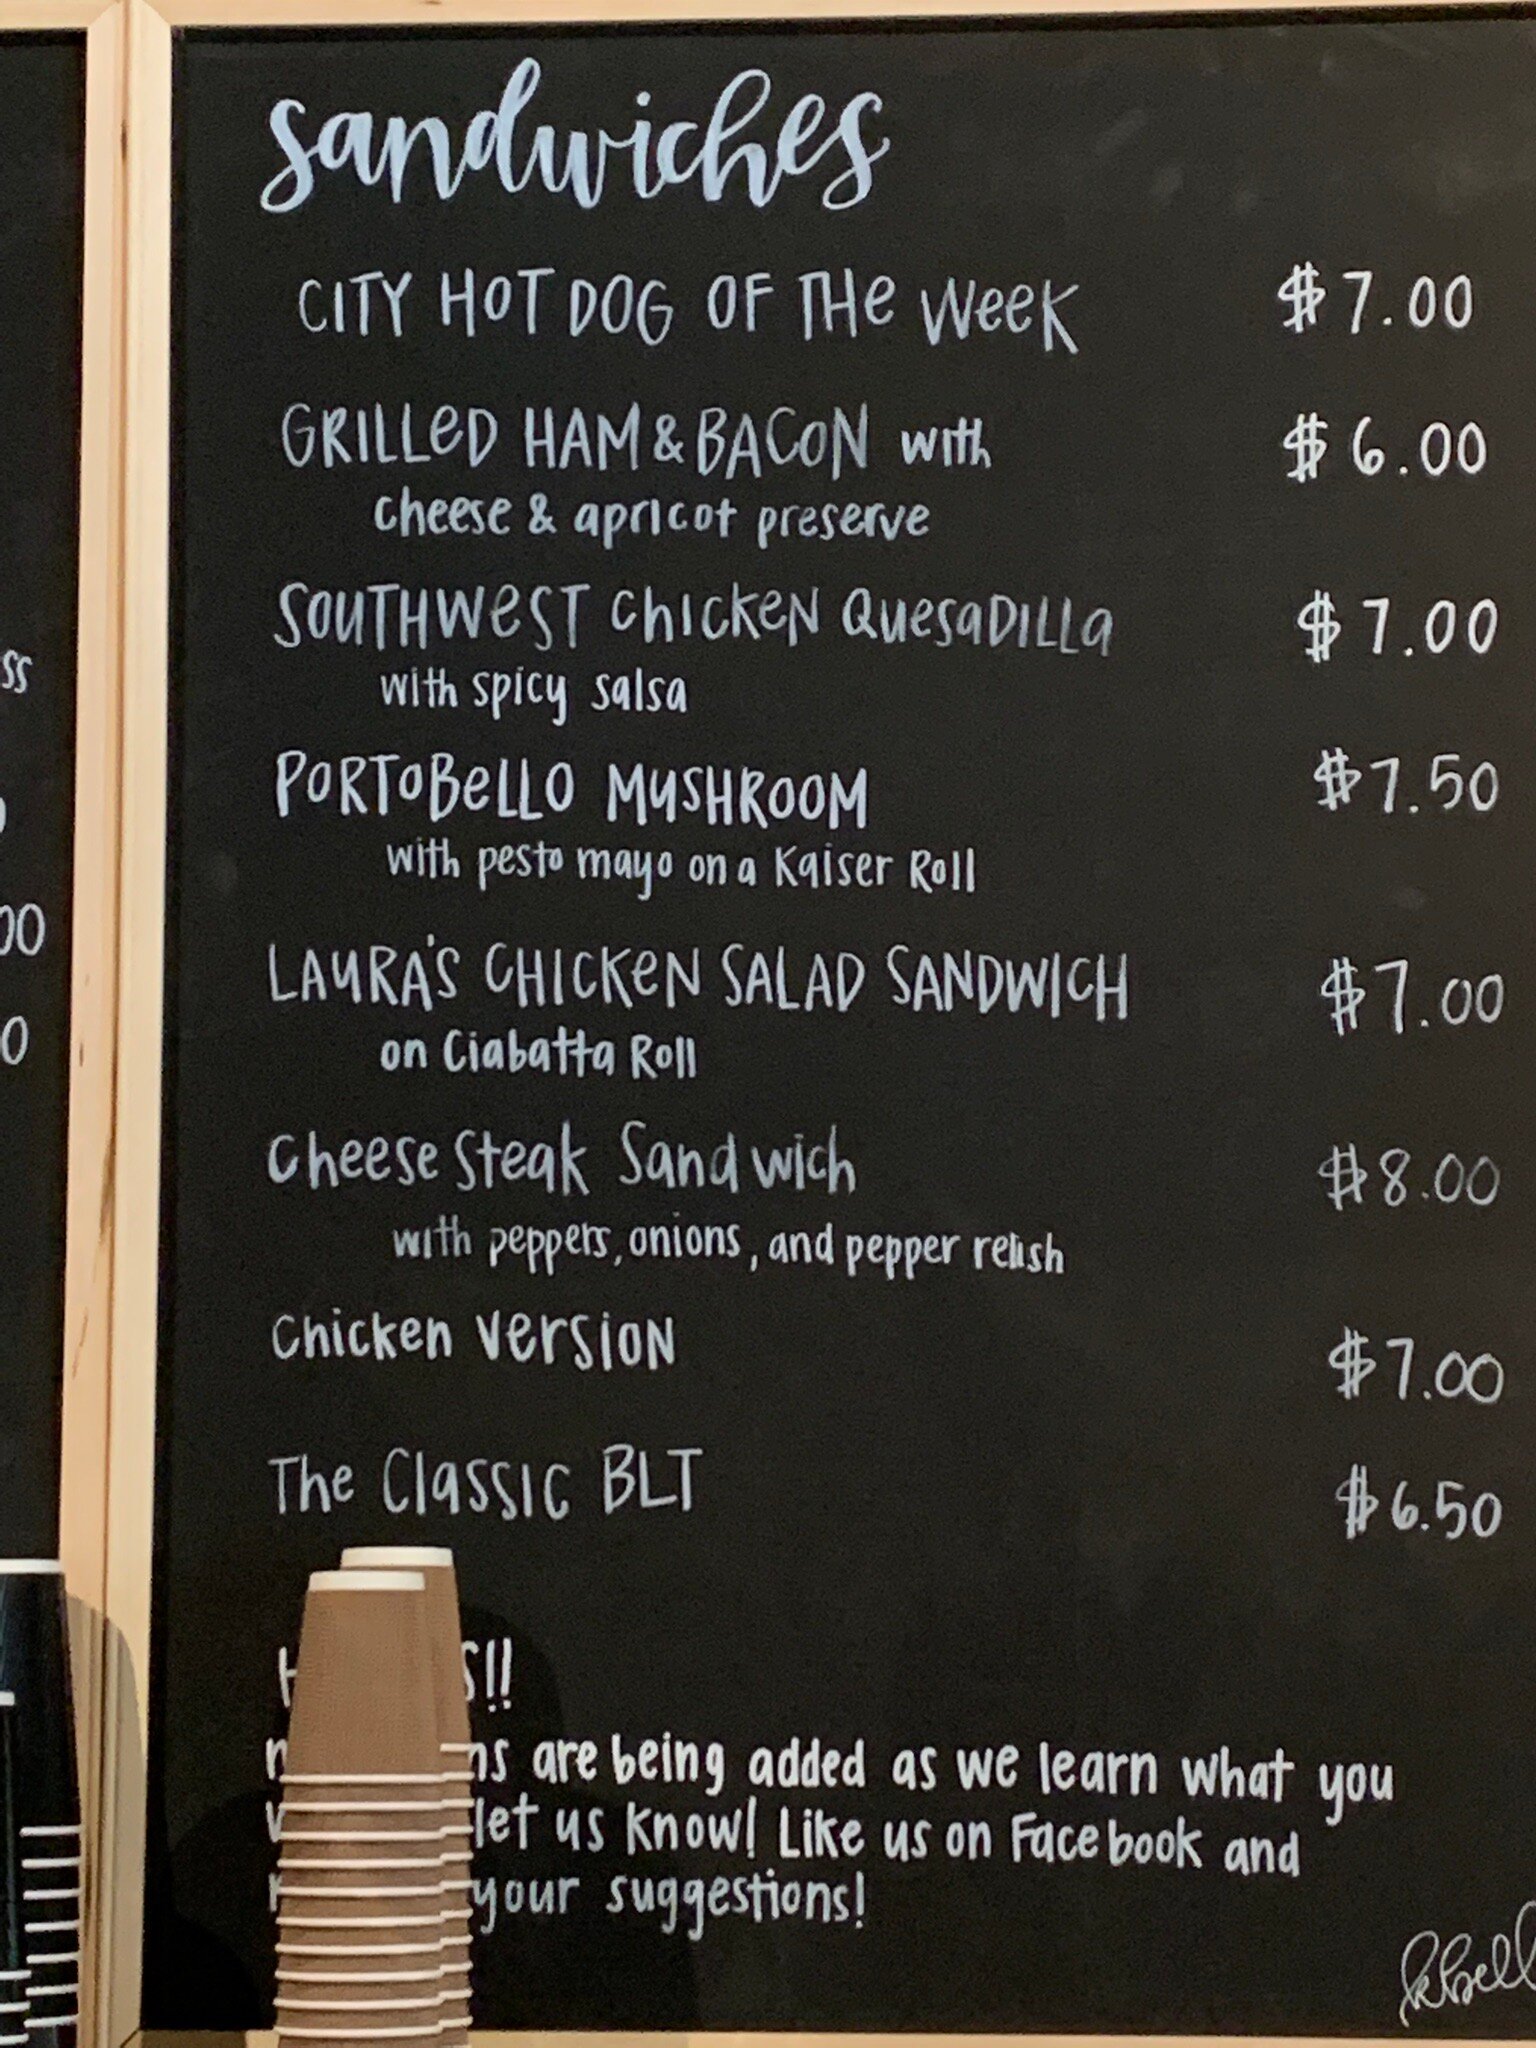 sandwiches
CITY HOT DOG OF THe WeeK $7.00
GRILLeD HAM & BACoN with $6.00
cheese & apricot preserve
SOUTHWeST CHICKeN QUesaDILLa $7.00
with spicy salsa
PORTOBeLLO MUSHROOM $7.50
with pesto mayo on a Kaiser Roll
LAURA'S CHICKeN SALAD SANDWICH $7.00
on Ciabatta Roll
Cheese Steak Sandwich $8.00
with peppers, onions, and pepper relish
Chicken version $7.00
The Classic BLT $6.50
S!!
are being added as we learn what you
let us know! Like us on Facebook and
your suggestions!
kbell
ss
00
0